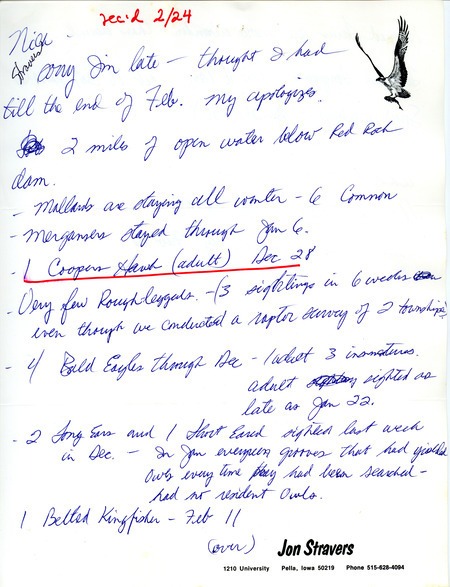 rec'd 2/24
Nick
Stravers
Sorry I'm late - thought I had
till the end of Feb. My apologizes.
2 miles of open water below Red Rock
dam.
- Mallards are staying all winter - 6 Common
- Mergansers stayed through Jan 6.
- 1 Coopers Hawk (adult) Dec 28
- Very few Rough-leggeds. - (3 sightings in 6 weeks
even though we conducted a raptor survey of 2 townships.
- 4 Bald Eagles through Dec - 1 adult 3 immatures.
adult sighted as
late as Jan 22.
- 2 Long Ears and 1 Short Eared sighted last week
in Dec. - In Jan evergreen grooves that had yielded
Owls every time they had been searched -
had no resident Owls.
1 Belted Kingfisher - Feb 11
(over)
Jon Stravers
1210 University Pella, Iowa 50219 Phone 515-628-4094